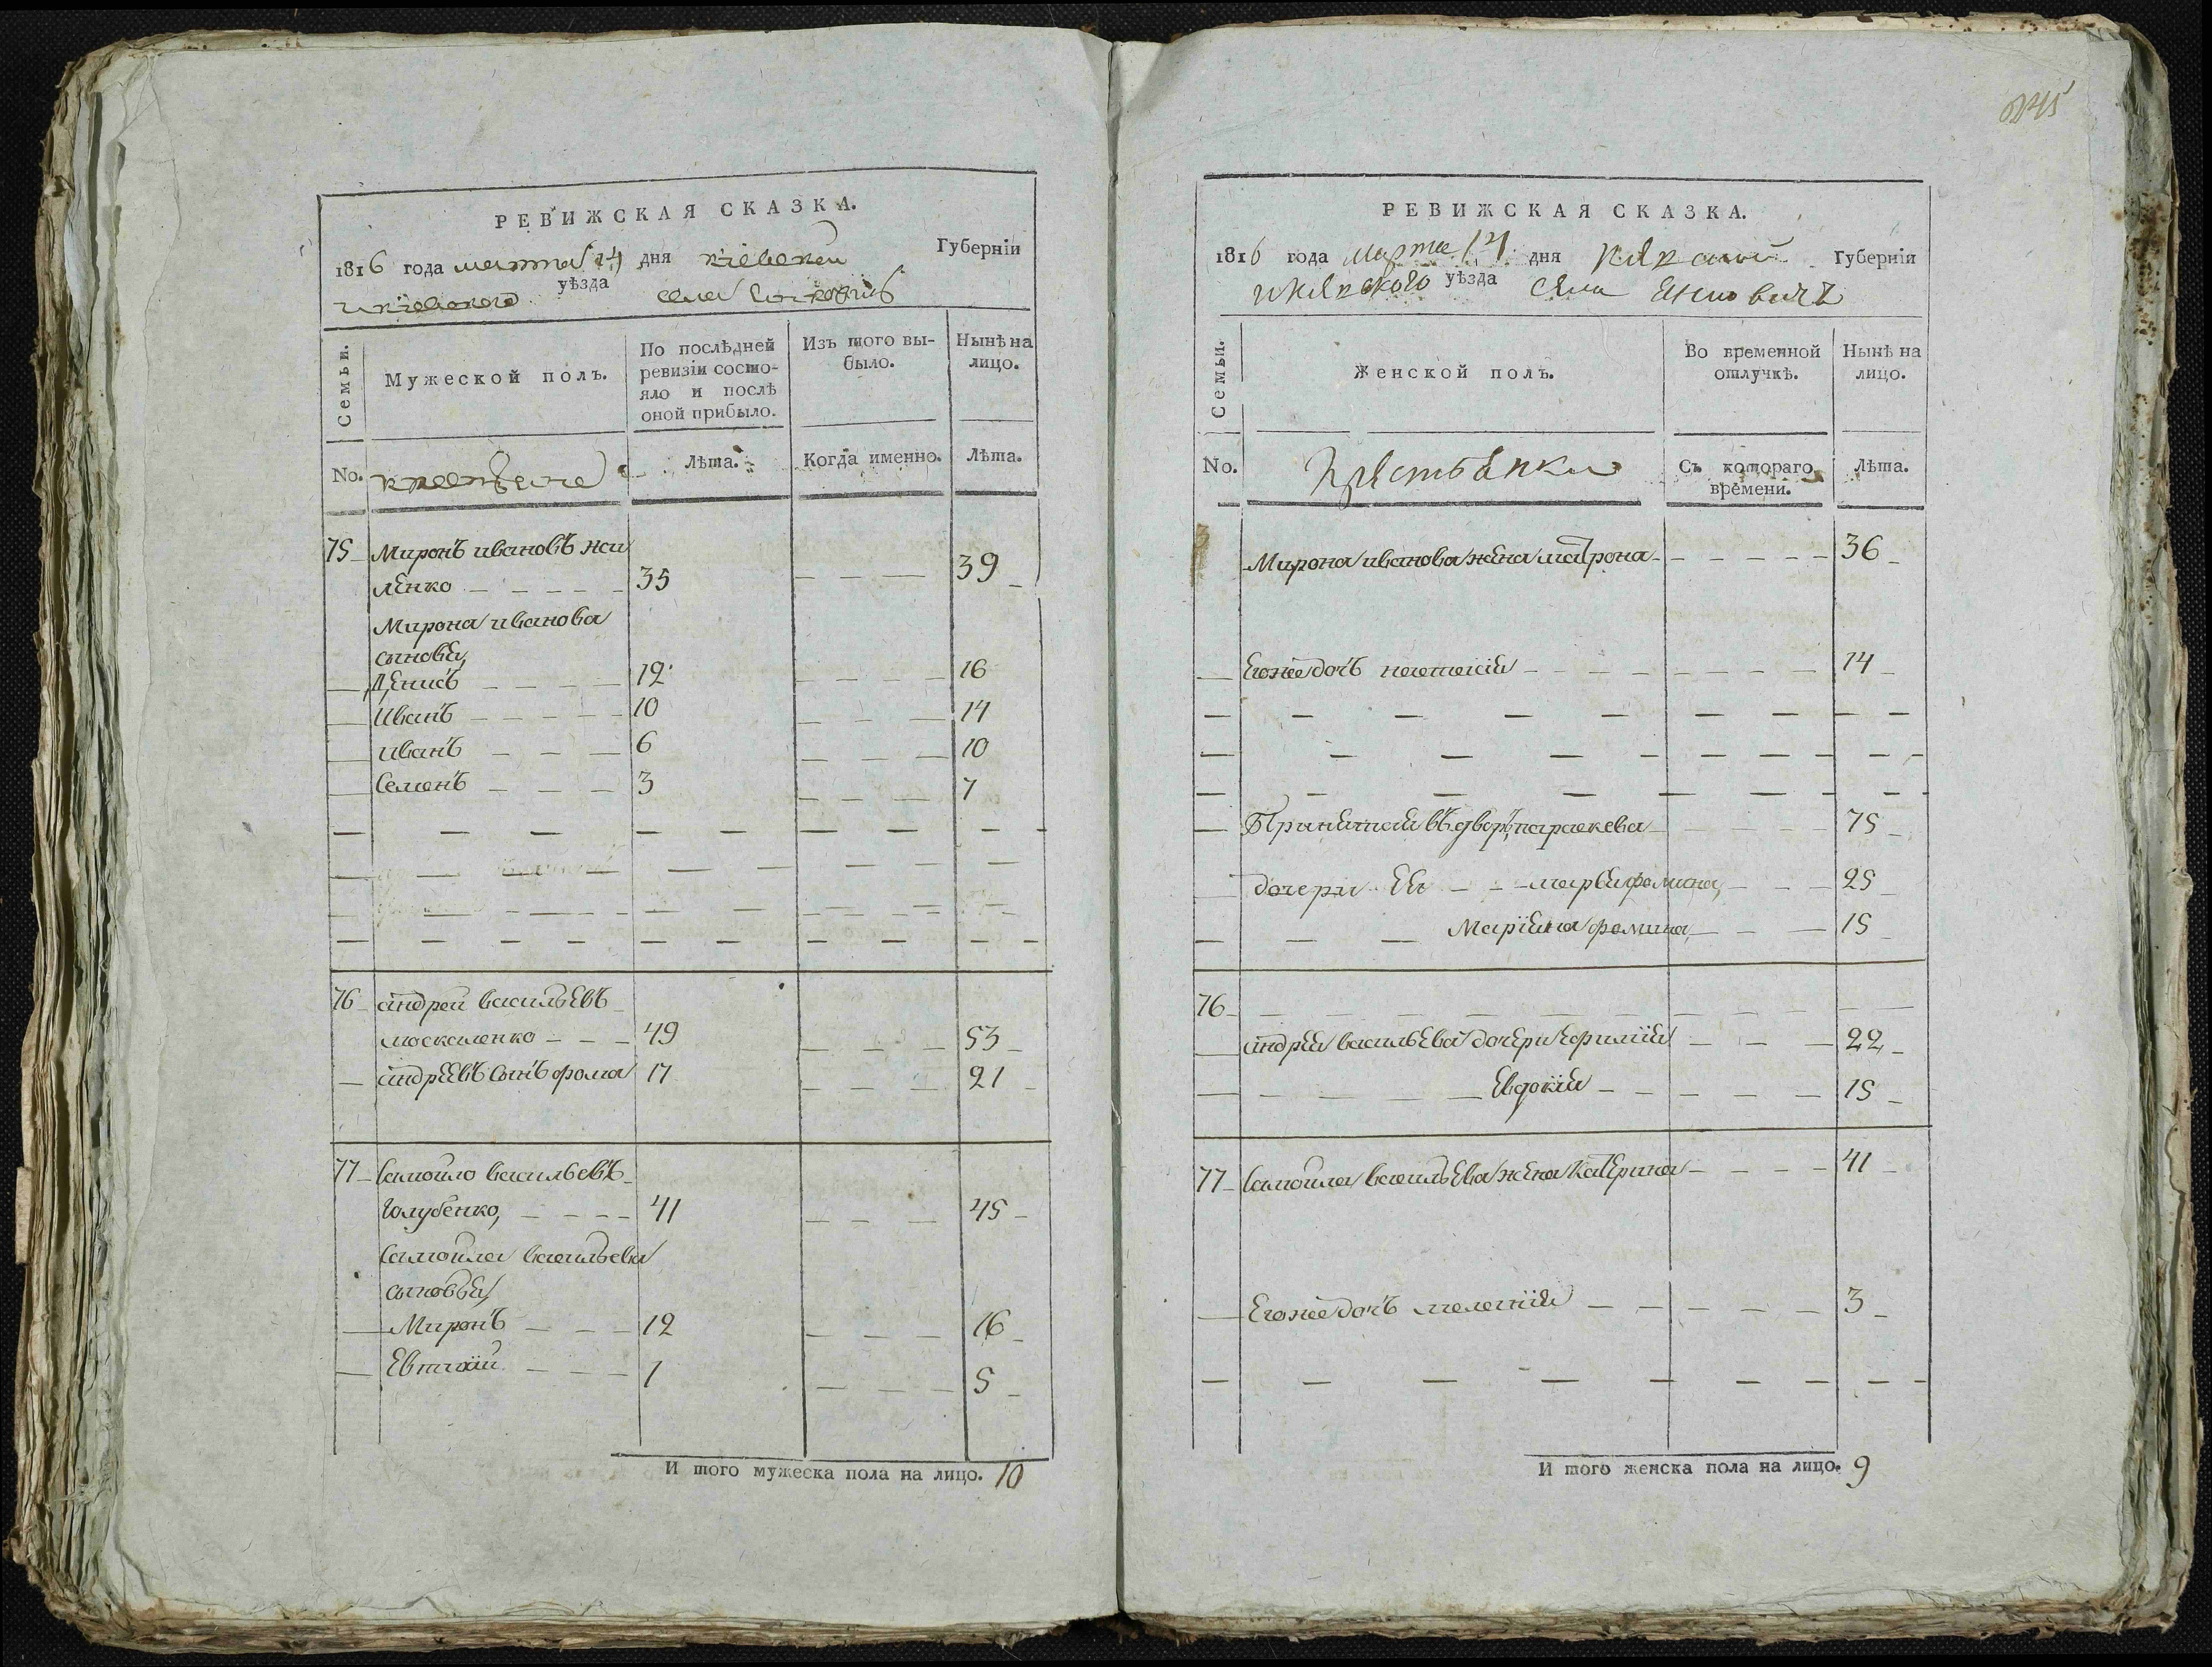 РЕВИЖСКАЯ СКАЗКА.
1816 года марта 14 дня киевской Губерніи
и киевского уѣзда села
Семьи.
Мужеской полъ.
По послѣдней ревизіи состояло и послѣ оной прибыло.
Изъ того выбыло.
Нынѣ на лицо.
No.
крестьяне
Лѣта.
Когда именно.
Лѣта.
75 Миронъ ивановъ
ленко 35 39
Мирона иванова
сыновья,
Денисъ 12 16
Иванъ 10 14
иванъ 6 10
Семенъ 3 7
76 андрей васильевъ
москаленко 49 53
андреевъ сынъ фома 17 21
77 Самойло васильевъ
Голубенко, 41 45
Самойла васильева
сыновья,
Миронъ 12 16
Евтихій 1 5
И того мужеска пола на лицо. 10
РЕВИЖСКАЯ СКАЗКА.
1816 года марта 14 дня Губерніи
уѣзда села
Семьи.
Женской полъ.
Во временной отлучкѣ.
Нынѣ на лицо.
No.
Крестьянки
Съ котораго времени.
Лѣта.
Мирона иванова жена матрона 36
Егоже дочь наталія 14
въ дворъ параскева 75
дочери ея марья фомина, 25
Маріина фомина, 15
76
андрея васильева дочери Ефимія 22
Евдокія 15
77 Самойла васильева жена Катерина 41
Егоже дочь меланія 3
И того женска пола на лицо. 9